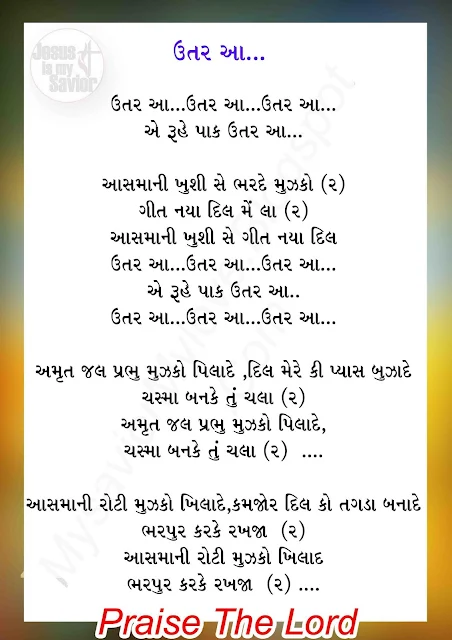 Jesus
is my
Savior
ઉતર આ...
ઉતર આ...ઉતર આ...ઉતર આ...
એ રૂહે પાક ઉતર આ...
આસમાની ખુશી સે ભરદે મુઝકો (૨)
ગીત નયા દિલ મેં લા (૨)
આસમાની ખુશી સે ગીત નયા દિલ
ઉતર આ...ઉતર આ...ઉતર આ...
એ રૂહે પાક ઉતર આ..
ઉતર આ...ઉતર આ...ઉતર આ...
અમૃત જલ પ્રભુ મુઝકો પિલાદે ,દિલ મેરે કી પ્યાસ બુઝાદે
ચસ્મા બનકે તું ચલા (૨)
અમૃત જલ પ્રભુ મુઝકો પિલાદે,
ચસ્મા બનકે તું ચલા (૨) ....
આસમાની રોટી મુઝકો ખિલાદે,કમજોર દિલ કો તગડા બનાદે
ભરપુર કરકે રખજા (૨)
આસમાની રોટી મુઝકો ખિલાદ
ભરપુર કરકે રખજા (૨) ....
Praise The Lord